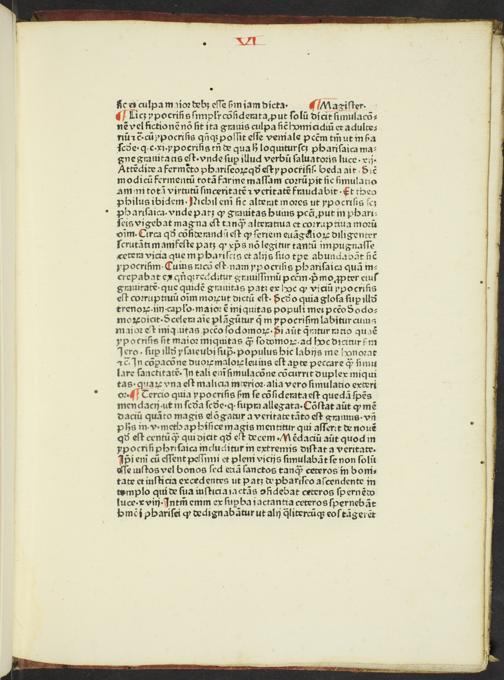 VI
sic ei culpa maior debꝫ esse ẜm iam dicta. ¶ Magister.
¶ Licꝫ ypocrisis simplr̄ cōsiderata, put solū dicit simulacō-
nē vel fictionē nō sit ita grauis culpa sic̄ homicidiū et adulte-
riū ⁊c̄ cū ypocrisis qn̄qꝫ possit esse veniale pctm̄ tn̄ ut in ẜa
scd̄e. q. c. xi. ypocrisis tn̄ de qua h̄ loquitur scꝫ pharisaica ma-
gne grauitatis est. vnde sup illud verbū saluatoris luce. xij.
Attēdite a fermēto phariseoꝝ qd̄ est ypocrisis. beda ait. Sic̄
modicū fermentū totā farine massam corrūpit sic simulatio
animi totā virtutū sinceritatē ⁊ veritatē fraudabit. Et theo
philus ibidem. Nichil em̄ sic alterat mores ut ypocrisis scꝫ
pharisaica. vnde patꝫ ꝙ grauitas huius pcti, put in phari-
seis vigebat magna est tanꝙ alteratiua et corruptiua morū
oīm. Circa qd̄ cōsiderandū est ꝙ seriem euāgelioꝝ diligenter
scrutāti manifeste patꝫ ꝙ xp̄s nō legitur tantū impugnasse
cetera vicia que in phariseis et alijs suo tpe abundabāt sic̄
ypocrisim. Cuius racō est. nam ypocrisis pharisaica quā in-
crepabat ex qn̄qꝫ redditur grauissimū pcc̄m. p̄mo ꝓpter eius
grauitatē. que quidē grauitas patꝫ ex hoc ꝙ viciū ypocrisis
est corruptiuū oīm morū ut dictū est. Scd̄o quia glosa sup illd̄
trenoꝝ. iiij. capl̄o. maior ē iniquitas populi mei pcc̄o sodo-
moꝝ dicit. Scelera aīe plāgūtur ꝙ in ypocrisim labitur cuius
maior est iniquitas pcc̄o sodomoꝝ. Si aūt q̄ratur racio quare
ypocrisis sit maior iniquitas ꝙ̄ sodomoꝝ. ad hoc dicitur sup
Iero. sup illd̄ ysaie vbi sup̄. populus hic labijs me honorat
⁊c̄. In cōpacōne duoꝝ maloꝝ leuius est apte peccare ꝙ̄ simu
lare sanctitatē. In tali em̄ simulacōne cōcurrit duplex iniqui
tas. quaꝝ vna est malicia interior. alia vero simulatio exteri
or. ¶ Tercio quia ypocrisis ẜm se cōsiderata est quedā spēs
mendacij. ut in scd̄a scd̄e. q. supra allegata. Cōstat aūt ꝙ mē-
daciū quāto magis elōgatur a veritate tāto est grauius. vn̄
ph̄s in. v. methaphisice magis mentitur qui asserit de nouē
qd̄ est centū ꝙ̄ qui dicit qd̄ est decem. Mēdaciū aūt quod in
ypocrisi pharisaica includitur in extremis distat a veritate.
Ip̄i em̄ cū essent pessimi et pleni vicijs simulabāt se non solū
esse iustos vel bonos sed etiā sanctos tanꝙ ceteros in boni-
tate et iusticia excedentes ut patꝫ de phariseo ascendente in
templo qui de sua iusticia iactās ōndebat ceteros spernēdo
luce. xviij. Intm̄ enim ex supbia iactantia ceteros spernebāt
h̄mōi pharisei ꝙ dedignabātur ut alij qualitercūqꝫ eos tāgerēt